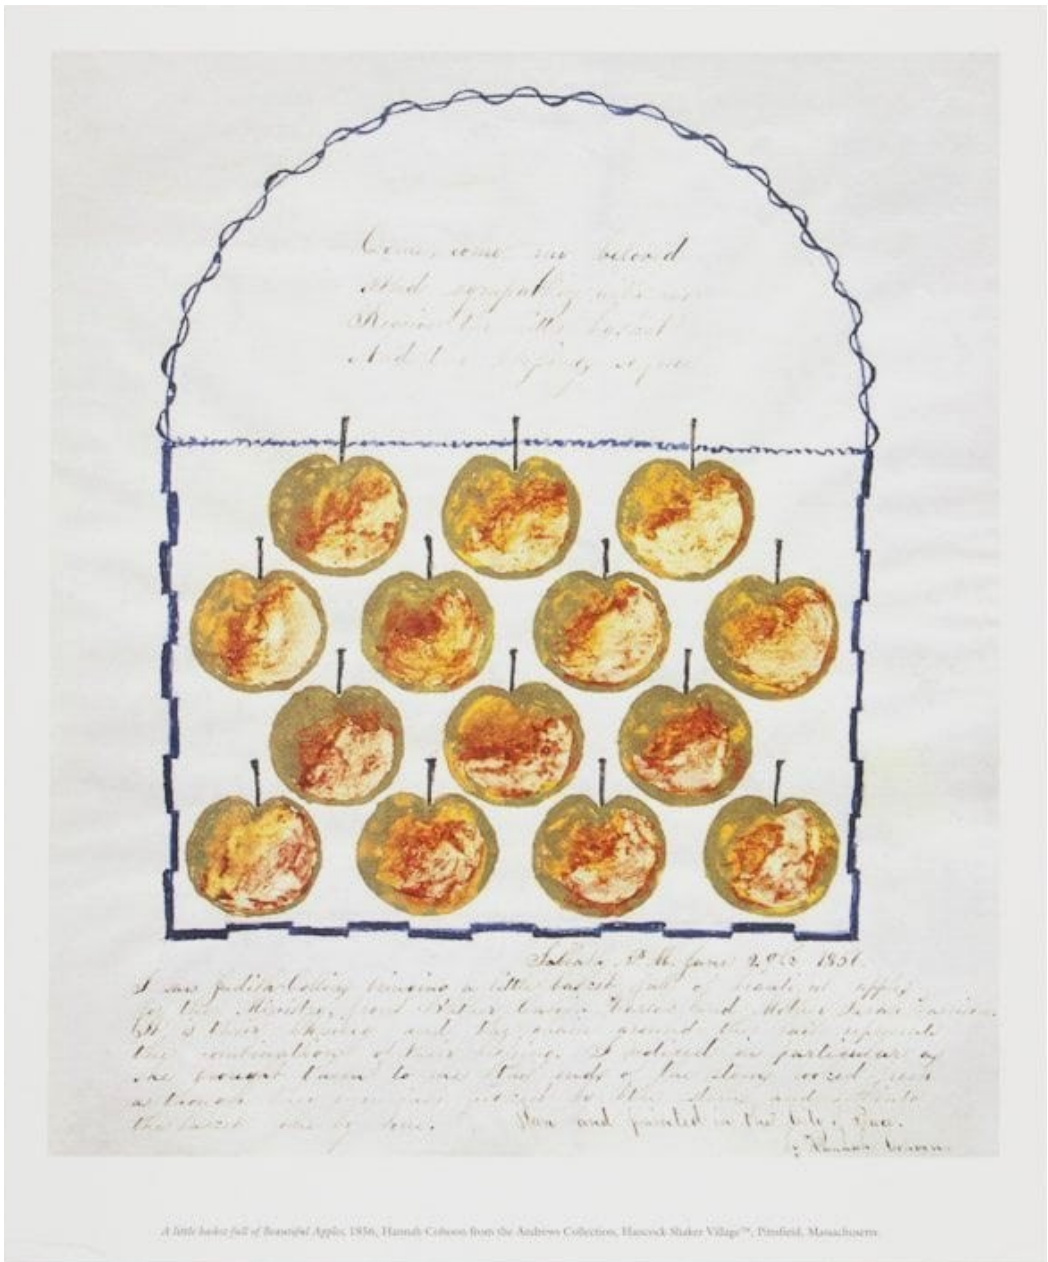 Come, come my beloved
And sympathize with me
Receive the little basket
And the blessing so free
Sabbath. P. M. June 29th 1856.
I saw Judith Collins bringing a little basket full of beautiful apples
for the Ministry, from Brother Calvin Harlow and Mother Sarah
is their blessing and the chain around the bail represents
the combination of their blessing. I noticed in particular as
she brought them to me the ends of the stems looked fresh
as though
the basket one by one. Seen and painted in the City of Peace.
by Hannah Cohoon.
A little basket full of Beautiful Apples, 1856, Hannah Cohoon from the Andrews Collection, Hancock Shaker Village™, Pittsfield, Massachusetts